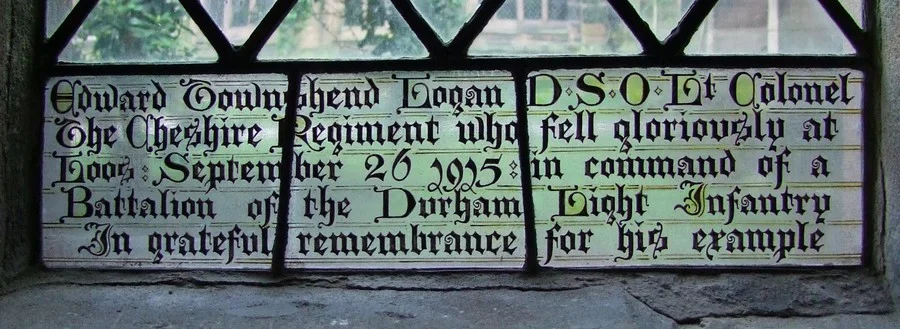 Edward Townshend Logan D·S·O·Lt Colonel
The Cheshire Regiment who fell gloriously at
Loos: September 26 1915: in command of a
Battalion of the Durham Light Infantry
In grateful remembrance for his example